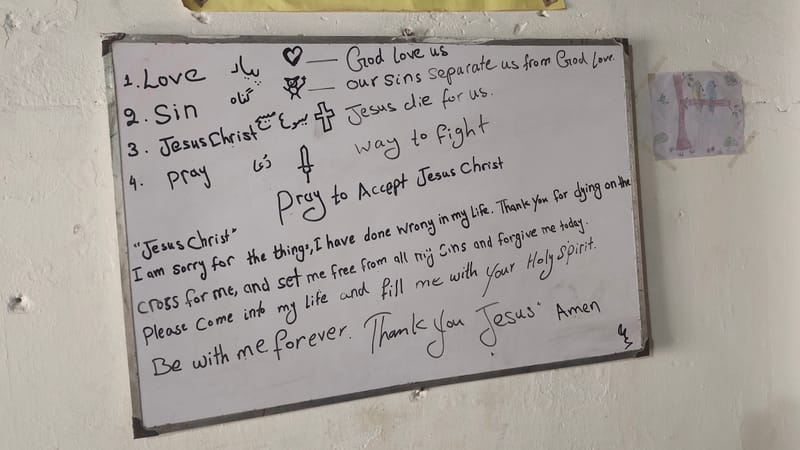 1. Love پیار — God love us
2. Sin گناہ — our sins separate us from God Love.
3. Jesus Christ یسوع مسیح Jesus die for us.
4. Pray دُعا way to fight
Pray to Accept Jesus Christ
"Jesus Christ"
I am sorry for the things, I have done wrong in my life. Thank you for dying on the
cross for me, and set me free from all my Sins and forgive me today.
Please Come into my life and fill me with your Holy Spirit.
Be with me forever. Thank you Jesus" Amen